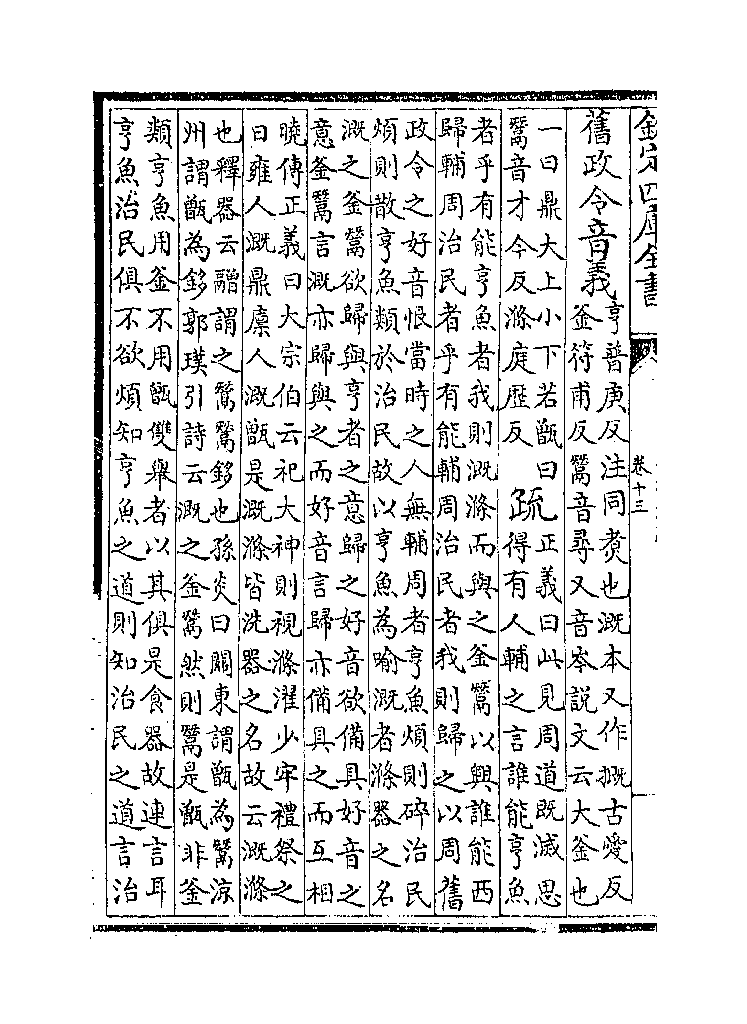 欽定四庫全書
卷十三
舊政令音義
亨普庚反注同煑也溉本又作摡古愛反
釜符甫反鬵音尋又音岑説文云大釜也
一曰鼎大上小下若甑曰
鬵音才今反滌庭歷反
疏
正義曰此見周道既滅思
得有人輔之言誰能亨魚
者乎有能亨魚者我則溉滌而與之釜鬵以興誰能西
歸輔周治民者乎有能輔周治民者我則歸之以周舊
政令之好音恨當時之人無輔周者亨魚煩則碎治民
煩則散亨魚類於治民故以亨魚為喻溉者滌器之名
溉之釜鬵欲歸與亨者之意歸之好音欲備具好音之
意釜鬵言溉亦歸與之而好音言歸亦備具之而互相
曉傳正義曰大宗伯云祀大神則視滌濯少牢禮祭之
日雍人溉鼎廩人溉甑是溉滌皆洗器之名故云溉滌
也釋器云䰝謂之鬵鬵鉹也孫炎曰關東謂甑為鬵涼
州謂甑為鉹郭璞引詩云溉之釜鬵然則鬵是甑非釜
類亨魚用釜不用甑雙舉者以其俱是食器故連言耳
亨魚治民俱不欲煩知亨魚之道則知治民之道言治